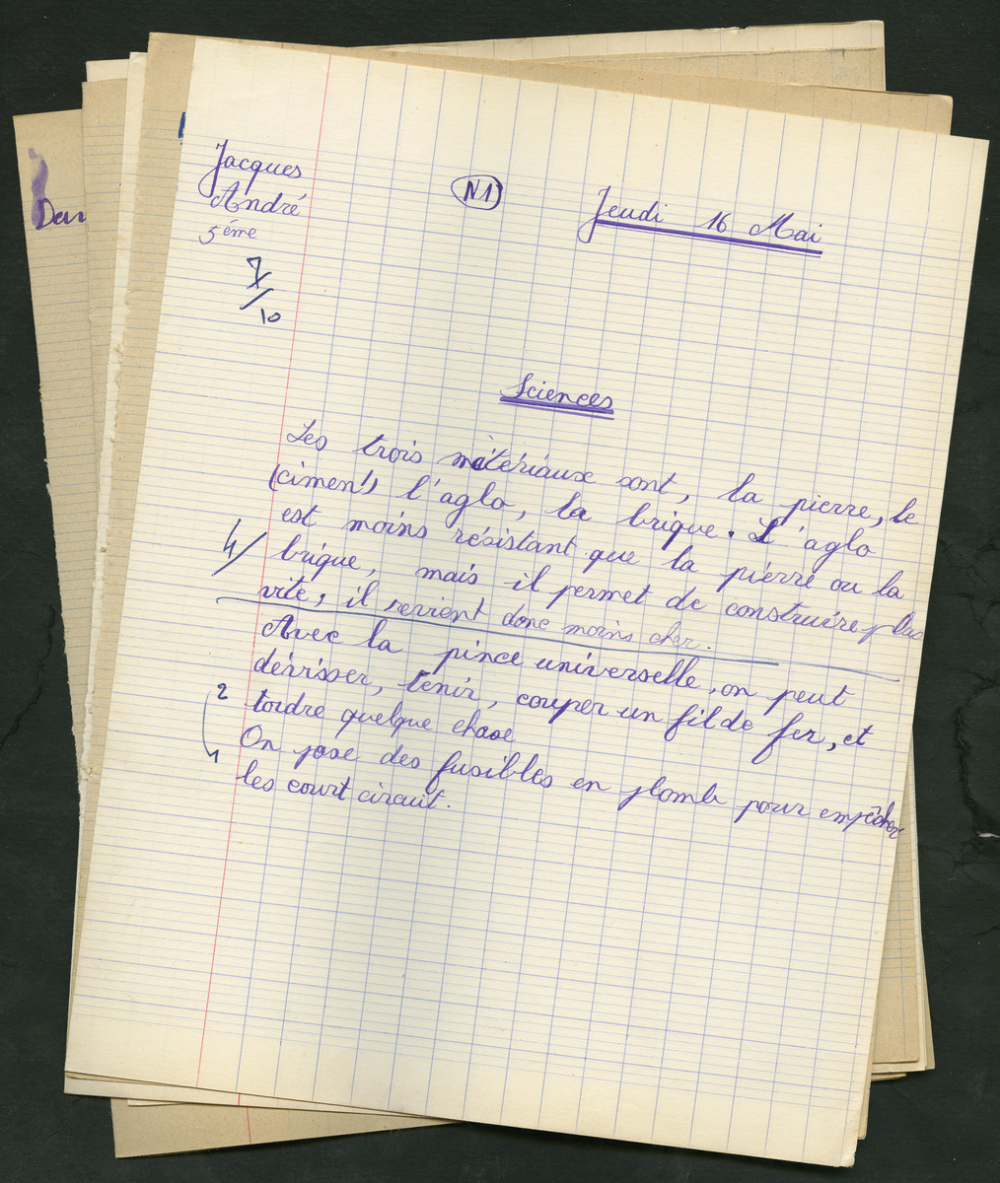 Jacques
André
5ème
N1
Jeudi 16 Mai
7/10
Sciences
Les trois matériaux sont, la pierre, le
(ciment) l'aglo, la brique. L'aglo
est moins résistant que la pierre ou la
4/ brique, mais il permet de construire plus
vite, il revient donc moins cher.
Avec la pince universelle, on peut
dévisser, tenir, couper un fil de fer, et
2 tordre quelque chose
On pose des fusibles en plomb pour empêcher
1 les court circuit.